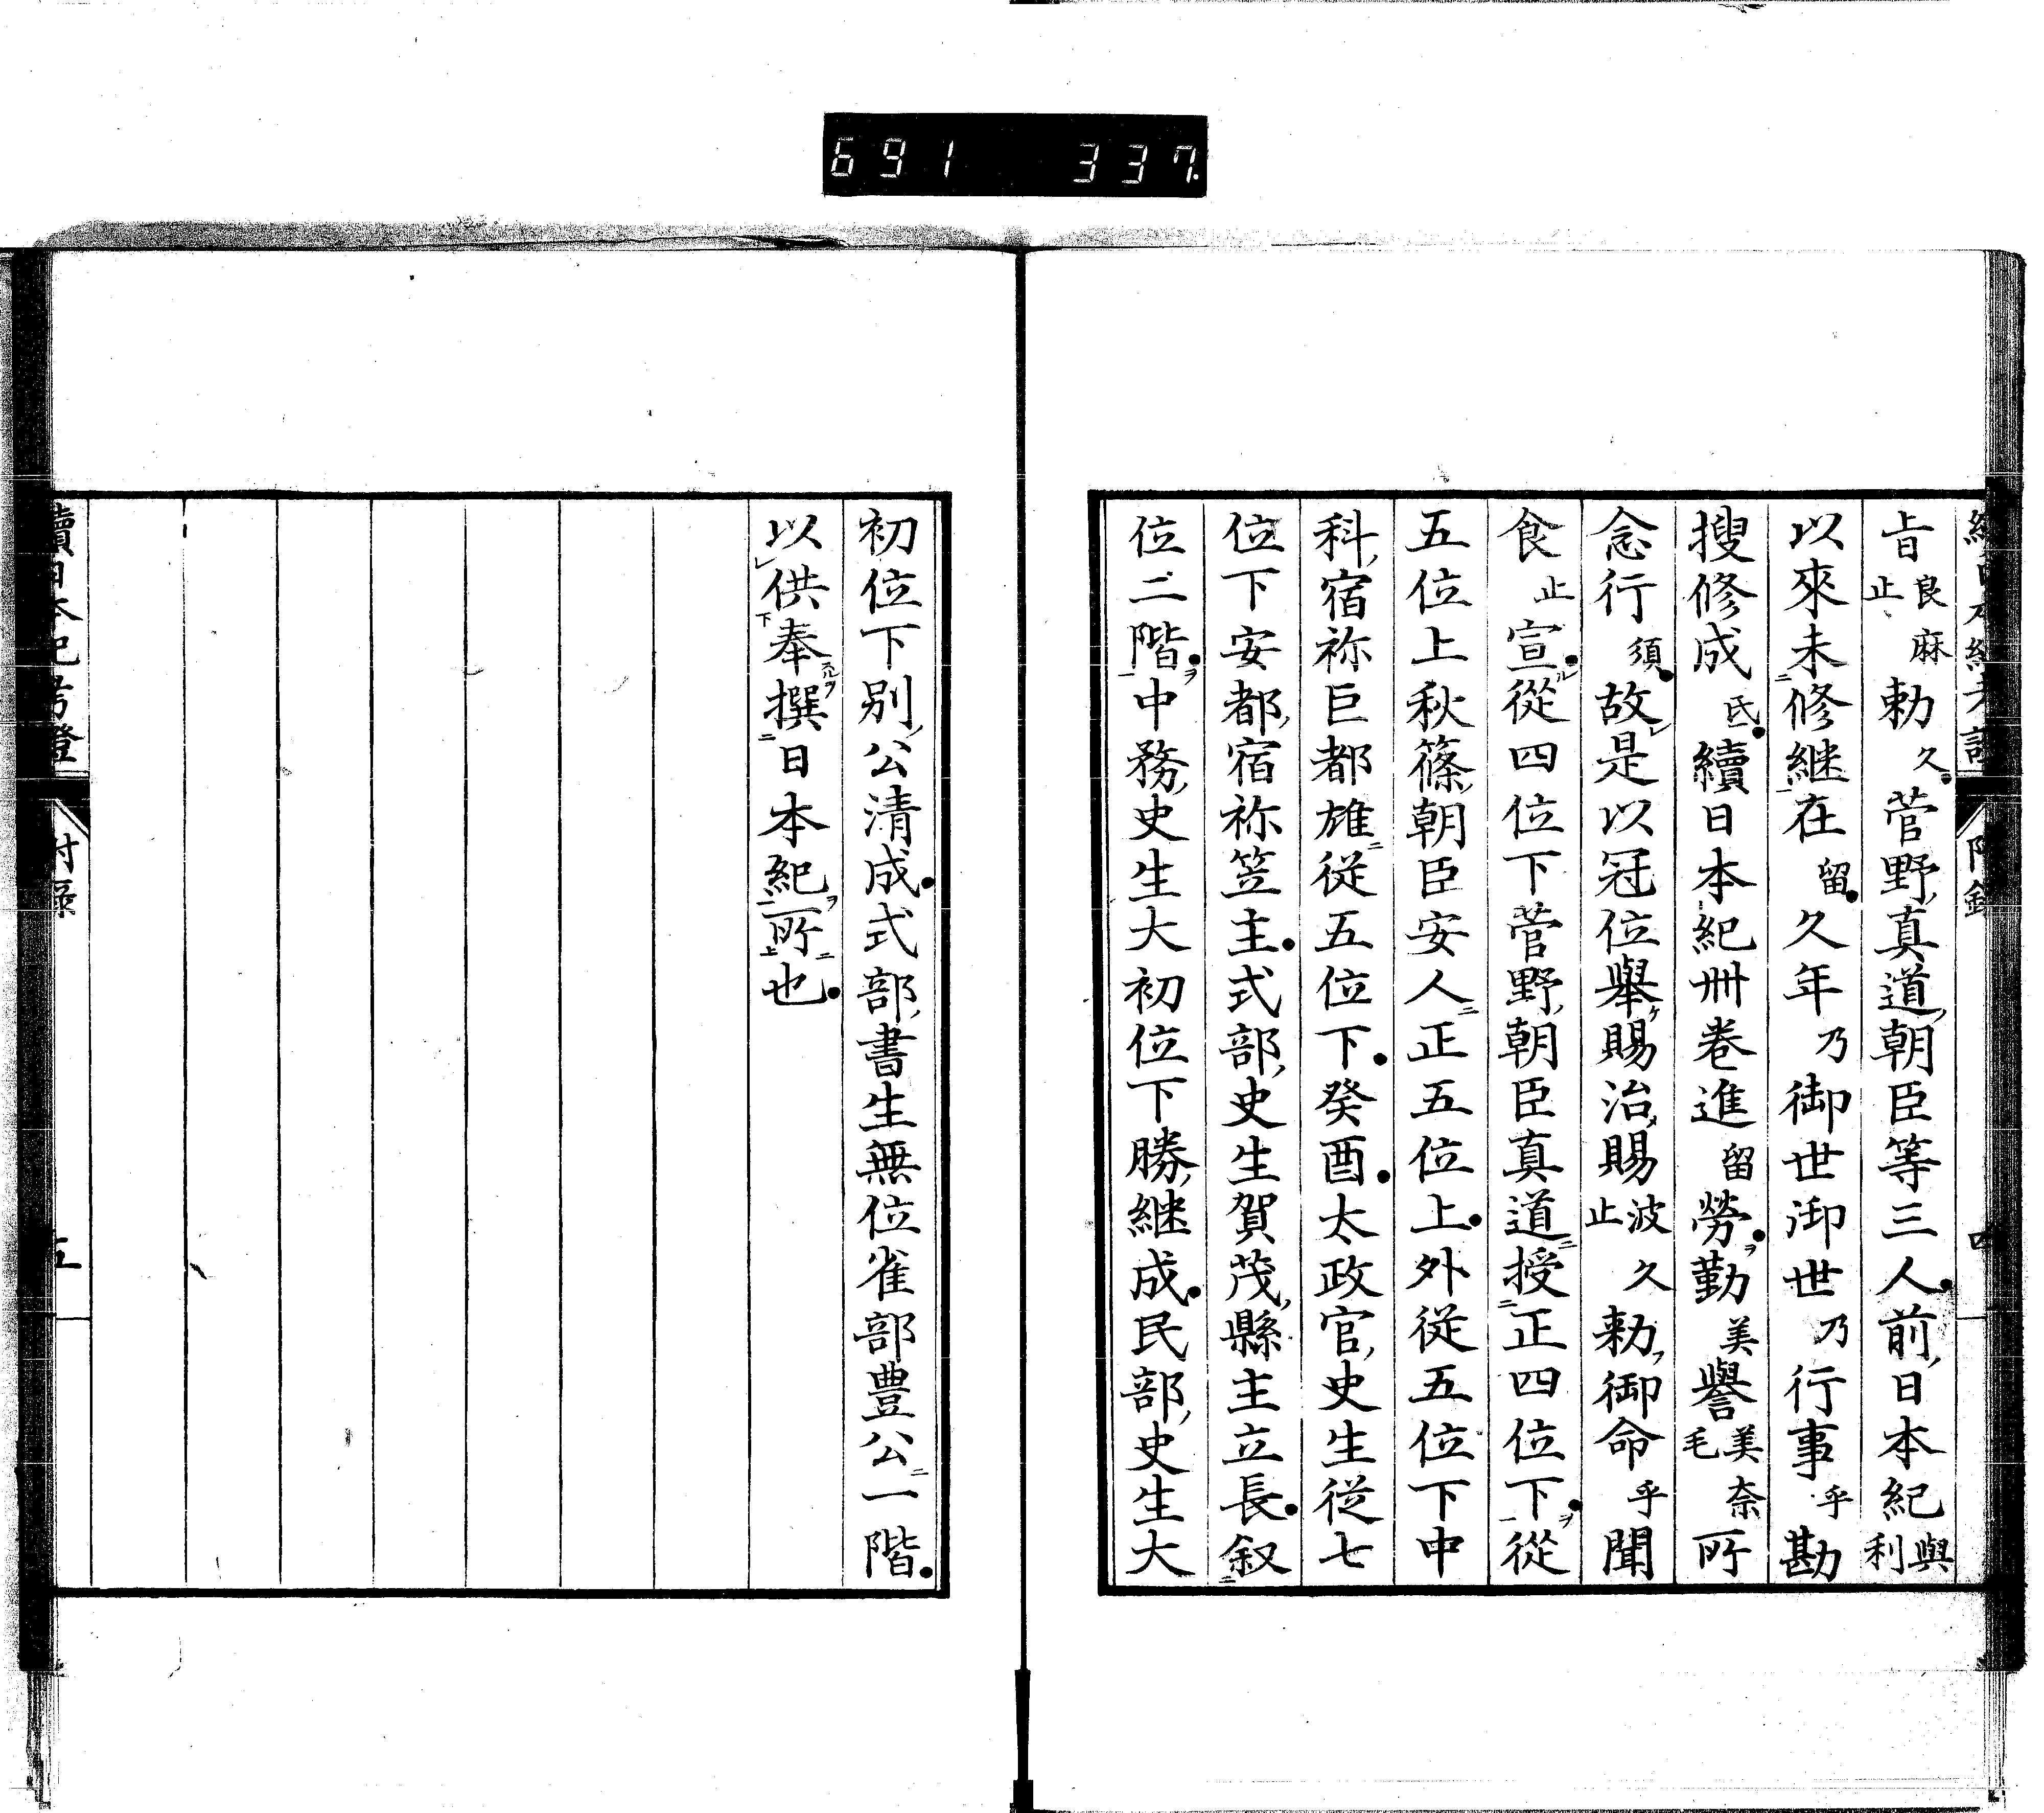 691 337
旨良麻止勅久菅野真道朝臣等三人前日本紀與利
以來未修継在留久年乃御世御世乃行事乎勘
搜修成氐續日本紀卌巻進留勞勤美譽美奈毛所
念行須故是以冠位舉賜治賜波久止勅御命乎聞
食止宣從四位下菅野朝臣真道授正四位下從
五位上秋篠朝臣安人正五位上外從五位下中
科宿祢巨都雄從五位下癸酉太政官史生從七
位下安都宿祢笠主式部史生賀茂縣主立長叙
位二階中務史生大初位下勝継成民部史生大
初位下別公清成式部書生無位雀部豊公一階
以供奉撰日本紀所也
續日本紀考證 附録 五